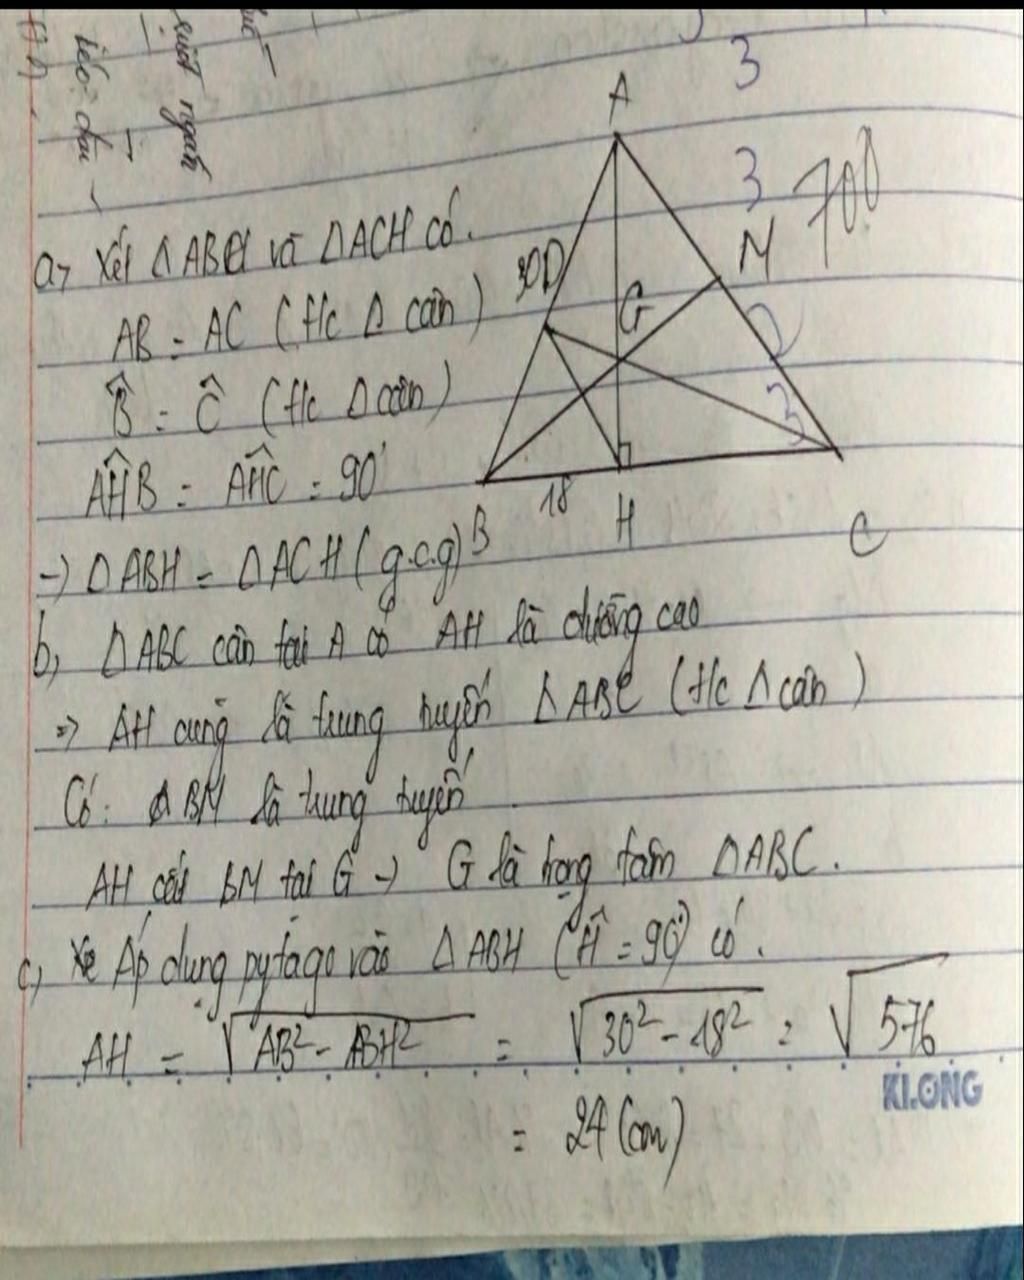 3
A
3
700
a, Xét △ABH và △ACH có.
30 D
M
AB = AC (t/c △ cân)
G
2
B̂ = Ĉ (t/c △ cân)
3
AĤB = AĤC = 90°
18
H
B
C
→ △ABH = △ACH (g.c.g)
b, △ABC cân tại A có AH là đường cao
=> AH cũng là trung tuyến △ABC (t/c △ cân)
Có: BM là trung tuyến
AH cắt BM tại G → G là trọng tâm △ABC.
c, Áp dụng pytago vào △ABH (Ĥ = 90°) có.
AH = √AB² - BH² = √30² - 18² = √576
= 24 (cm)
KLONG